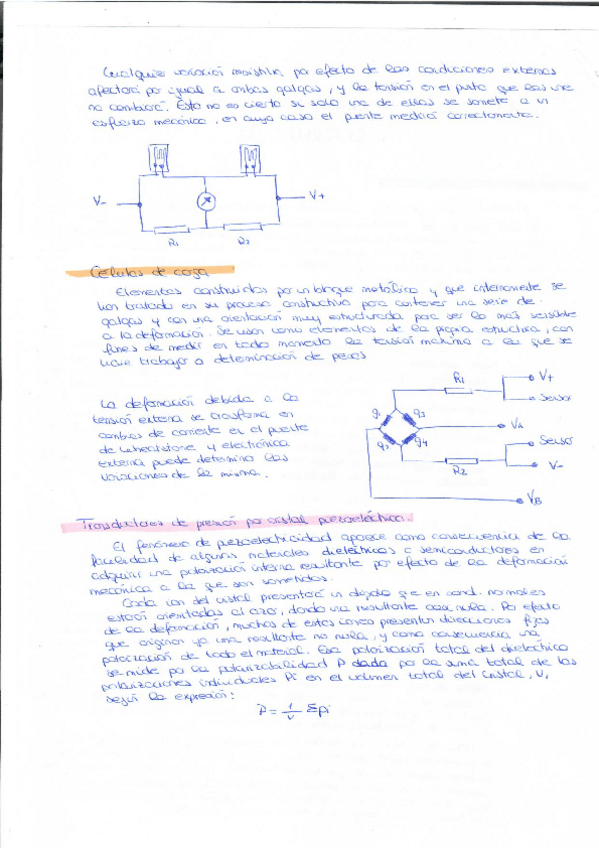 Cualquier variación resistiva por efecto de las condiciones externas
afectará por igual a ambas galgas, y la tensión en el punto que las une
no cambiará. Esto no es cierto si solo una de ellas se somete a un
esfuerzo mecánico, en cuyo caso el puente medirá correctamente.
V- V+
R1 R2
Células de carga
Elementos construidos por un bloque metálico y que interiormente se
han tratado en su proceso constructivo para contener una serie de
galgas y con una orientación muy estructurada para ser lo más sensible
a la deformación. Se usan como elementos de la propia estructura, con
fines de medir en todo momento la tensión máxima a la que se
hace trabajar o determinación de pesos
La deformación debida a la
tensión externa se trasforma en
cambios de corriente en el puente
de wheatstone y electrónica
externa puede determinar las
variaciones de la misma.
R1 V+
Sensor
g1 g3 VA
g2 g4 Sensor
R2 V-
VB
Transductores de presión por cristal piezoeléctrico.
El fenómeno de piezoelectricidad aparece como consecuencia de la
facilidad de algunos materiales dieléctricos o semiconductores en
adquirir una polarización interna resultante por efecto de la deformación
mecánica a la que son sometidos.
Cada ion del cristal presentará un dipolo que en cond. normales
estarán orientadas al azar, dando una resultante casi nula. Por efecto
de la deformación, muchos de estos iones presentan direcciones fijas
que originan ya una resultante no nula, y como consecuencia una
polarización de todo el material. Esa polarización total del dieléctrico
se mide por la polarizabilidad P dada por la suma total de las
polarizaciones individuales Pi en el volumen total del cristal, V,
según la expresión:
P = 1/V Σpi